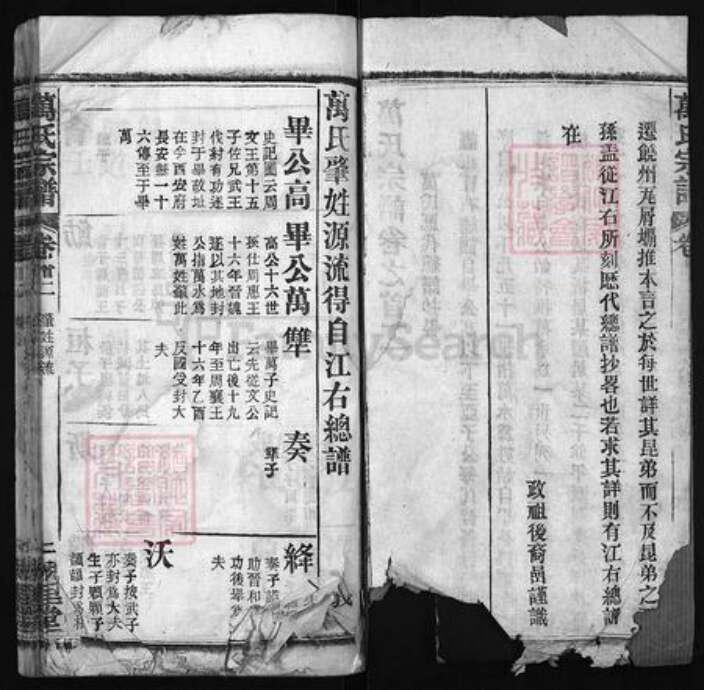 遷饒州瓦屑壩推本言之於每世詳其昆弟而不及昆弟之
孫盖從江右所刻歷代總譜抄畧也若求其詳則有江右總譜
在
政祖後裔嵒謹識
萬氏宗譜
萬氏肇姓源流得自江右總譜
畢公高
史記園云周
文王第十五
子佐兄武王
伐紂有功遂
封于畢故址
在今西安府
長安縣一十
六傳至于畢
萬
畢公萬
高公十六世
孫仕周惠王
十六年晉魏
遂以其地封
公指萬氷爲
姓萬姓鎮此
犨
畢萬子史記
云先從文公
出亡後十九
年至周襄王
十六年乙酉
反國受封大
夫
奏
犨子
絳
奏子
助晉和
功後畢
夫
沃
奏子按武子
亦封爲大夫
生子顆顆子
頡雖封爲
萬氏宗譜
卷首二
肇姓源流